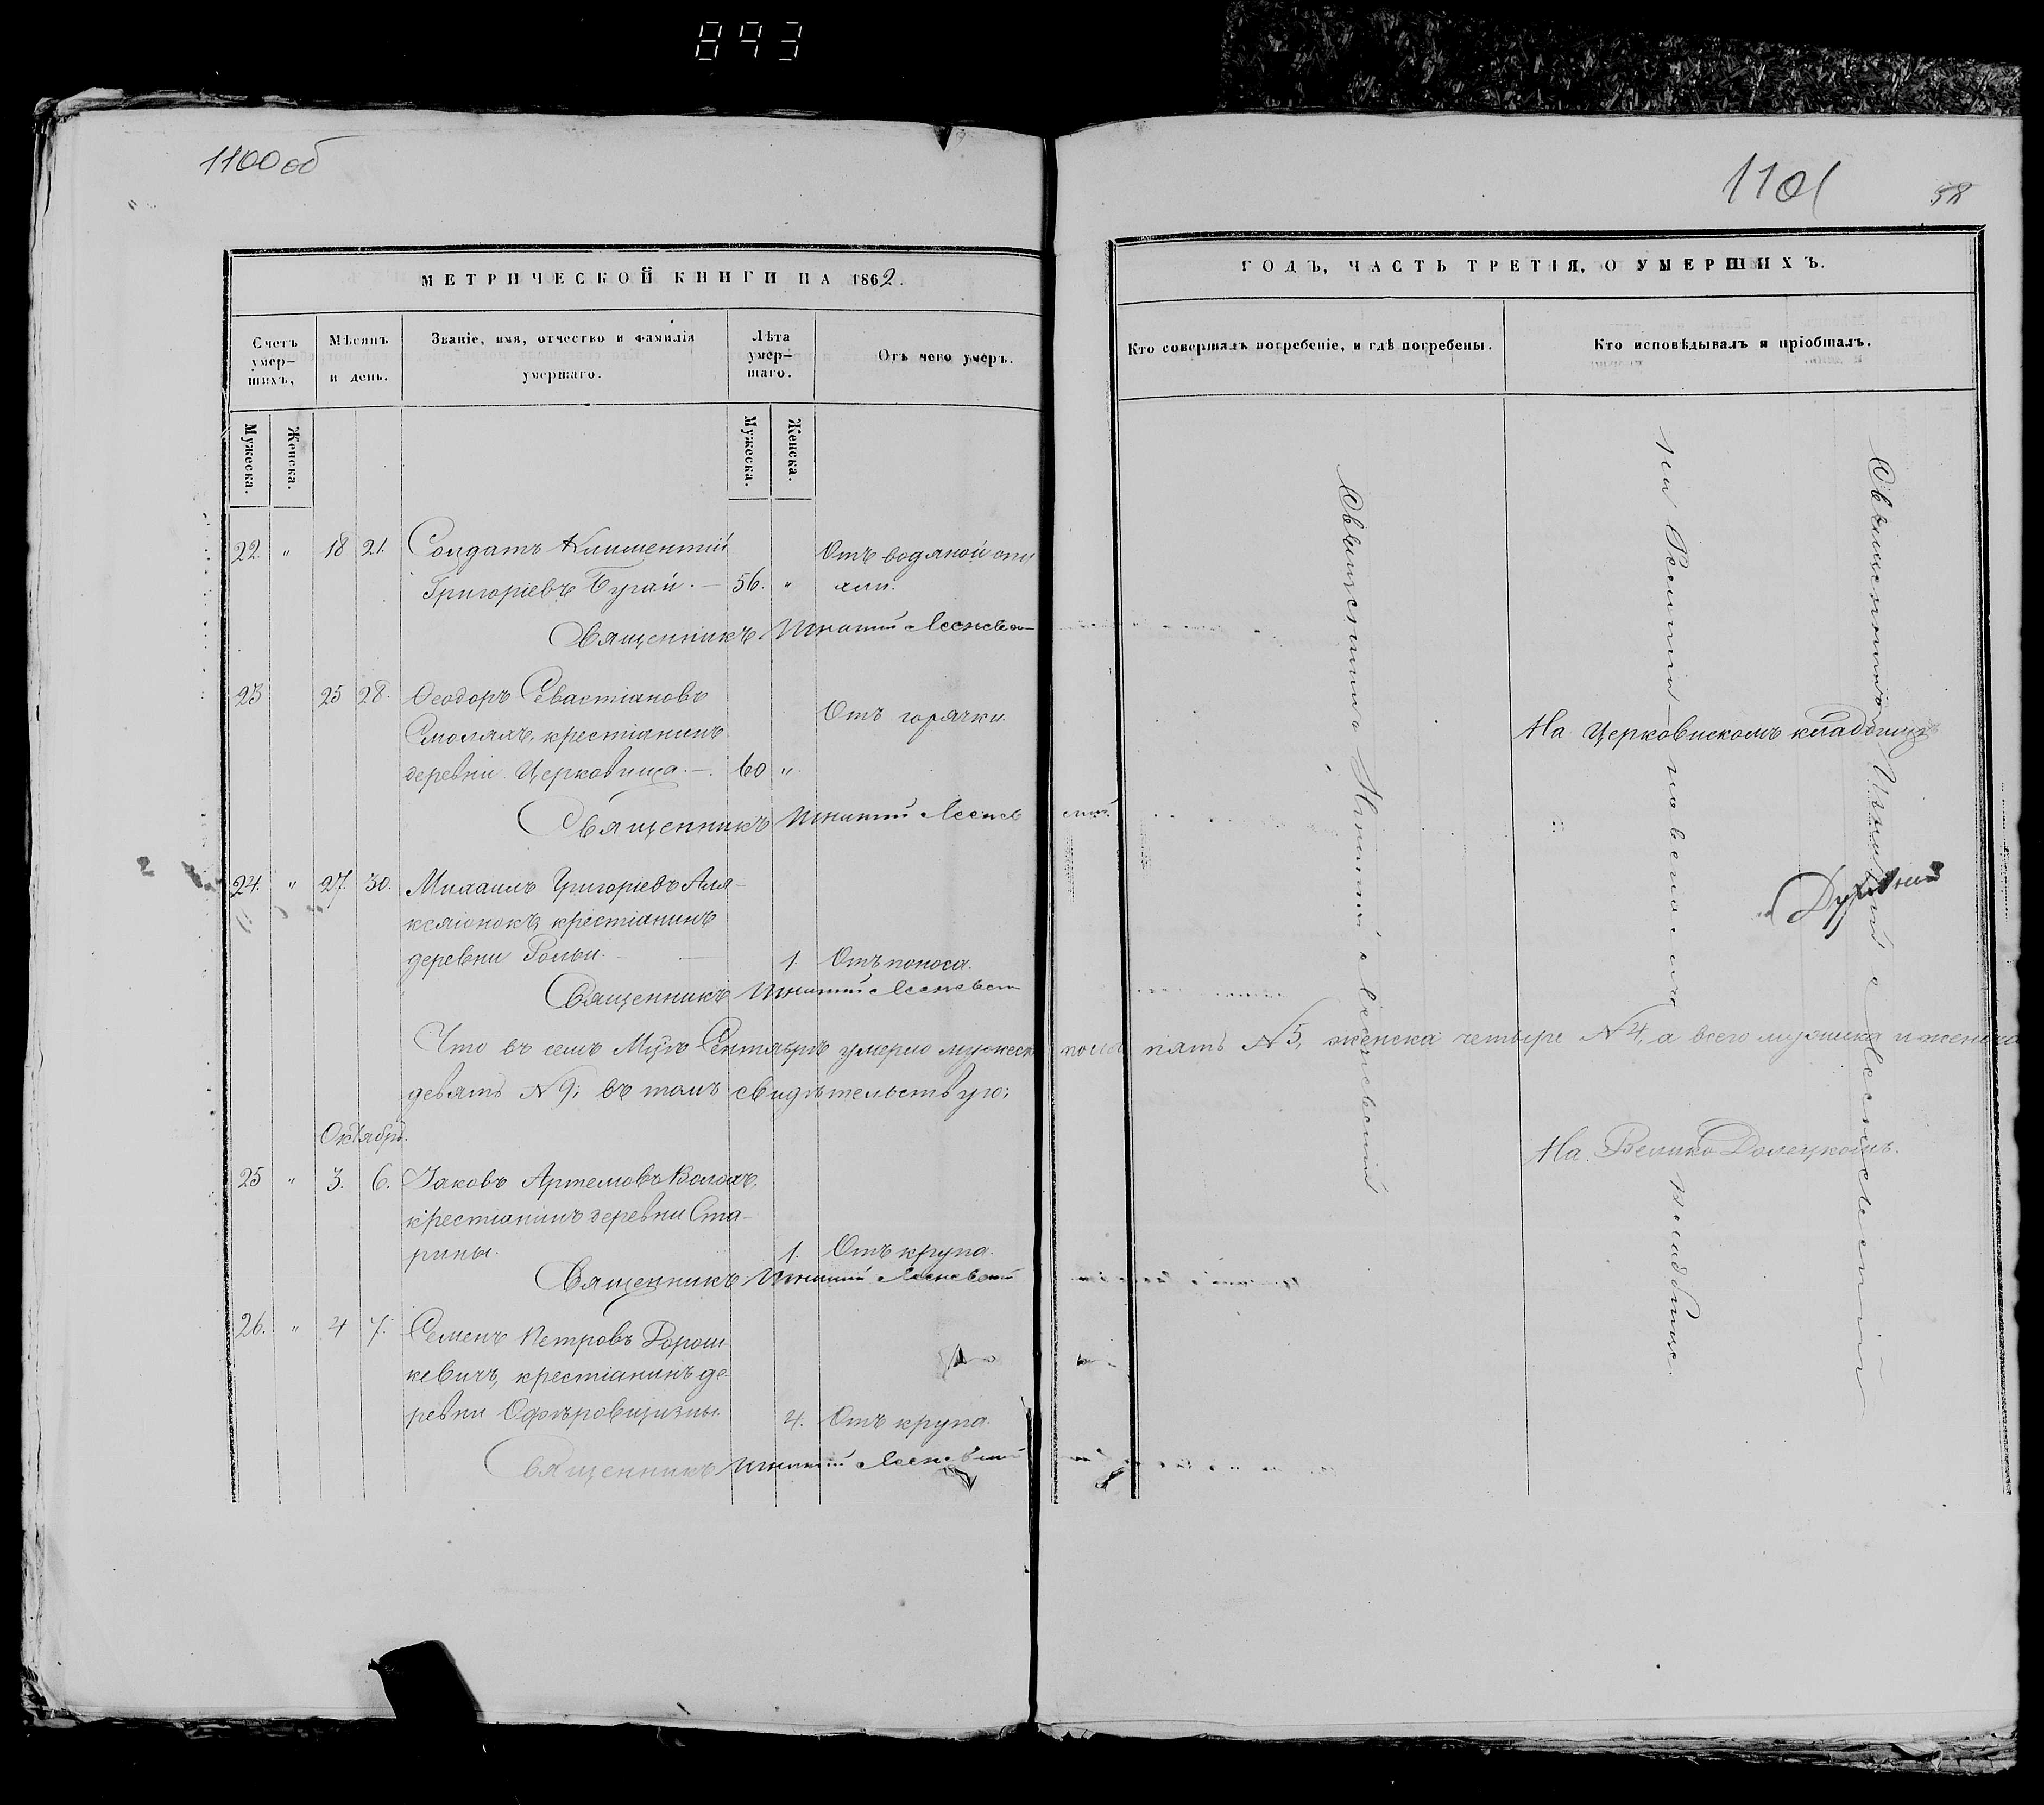 893
1100 об
1101
58
МЕТРИЧЕСКОЙ КНИГИ НА 1862.
Счетъ умер-шихъ,
Мѣсяцъ и день.
Званіе, имя, отчество и фамилія умершаго.
Лѣта умер-шаго.
Отъ чего умеръ.
Мужеска.
Женска.
Мужеска.
Женска.
22. " 18 21. Солдатъ Климентій Отъ водяной опу
Григоріевъ Бугай. — 56. " хли.
Священникъ Игнатій Лесневск
23 25 28. Ѳеодоръ Севастіановъ
Смолякъ, крестіанинъ Отъ горячки.
деревни Церковища. — 60 "
Священникъ Игнатій Леснев скій
24. " 27. 30. Михаилъ Григоріевъ Аля-
ксяіонокъ, крестіанинъ
деревни 1. Отъ поноса.
Священникъ Игнатій Лесневск
Что въ семъ Мцѣ Сентябрѣ умерло мужеска пола пять N 5, женска четыре N 4, а всего мужеска и женска
девять N 9; въ томъ свидѣтельствую;
Октябрь.
25 " 3. 6. Іаковъ Артемовъ Волохъ,
крестіанинъ деревни Ста-
рины. 1. Отъ крупа.
Священникъ Игнатій Лесневскій
26. " 4 7. Семенъ Петровъ Дорош
кевичъ, крестіанинъ де-
ревни Офѣровщизны. 4. Отъ крупа.
Священникъ Игнатій Лесневскій
ГОДЪ, ЧАСТЬ ТРЕТІЯ, О УМЕРШИХЪ.
Кто совершалъ погребеніе, и гдѣ погребены.
Кто исповѣдывалъ и пріобщалъ.
Священникъ Игнатій Лесневскій
кладбищѣ.
Священникъ Игнатій Лесневскій
На Церковискомъ кладбищѣ
На Велико Долецкомъ.